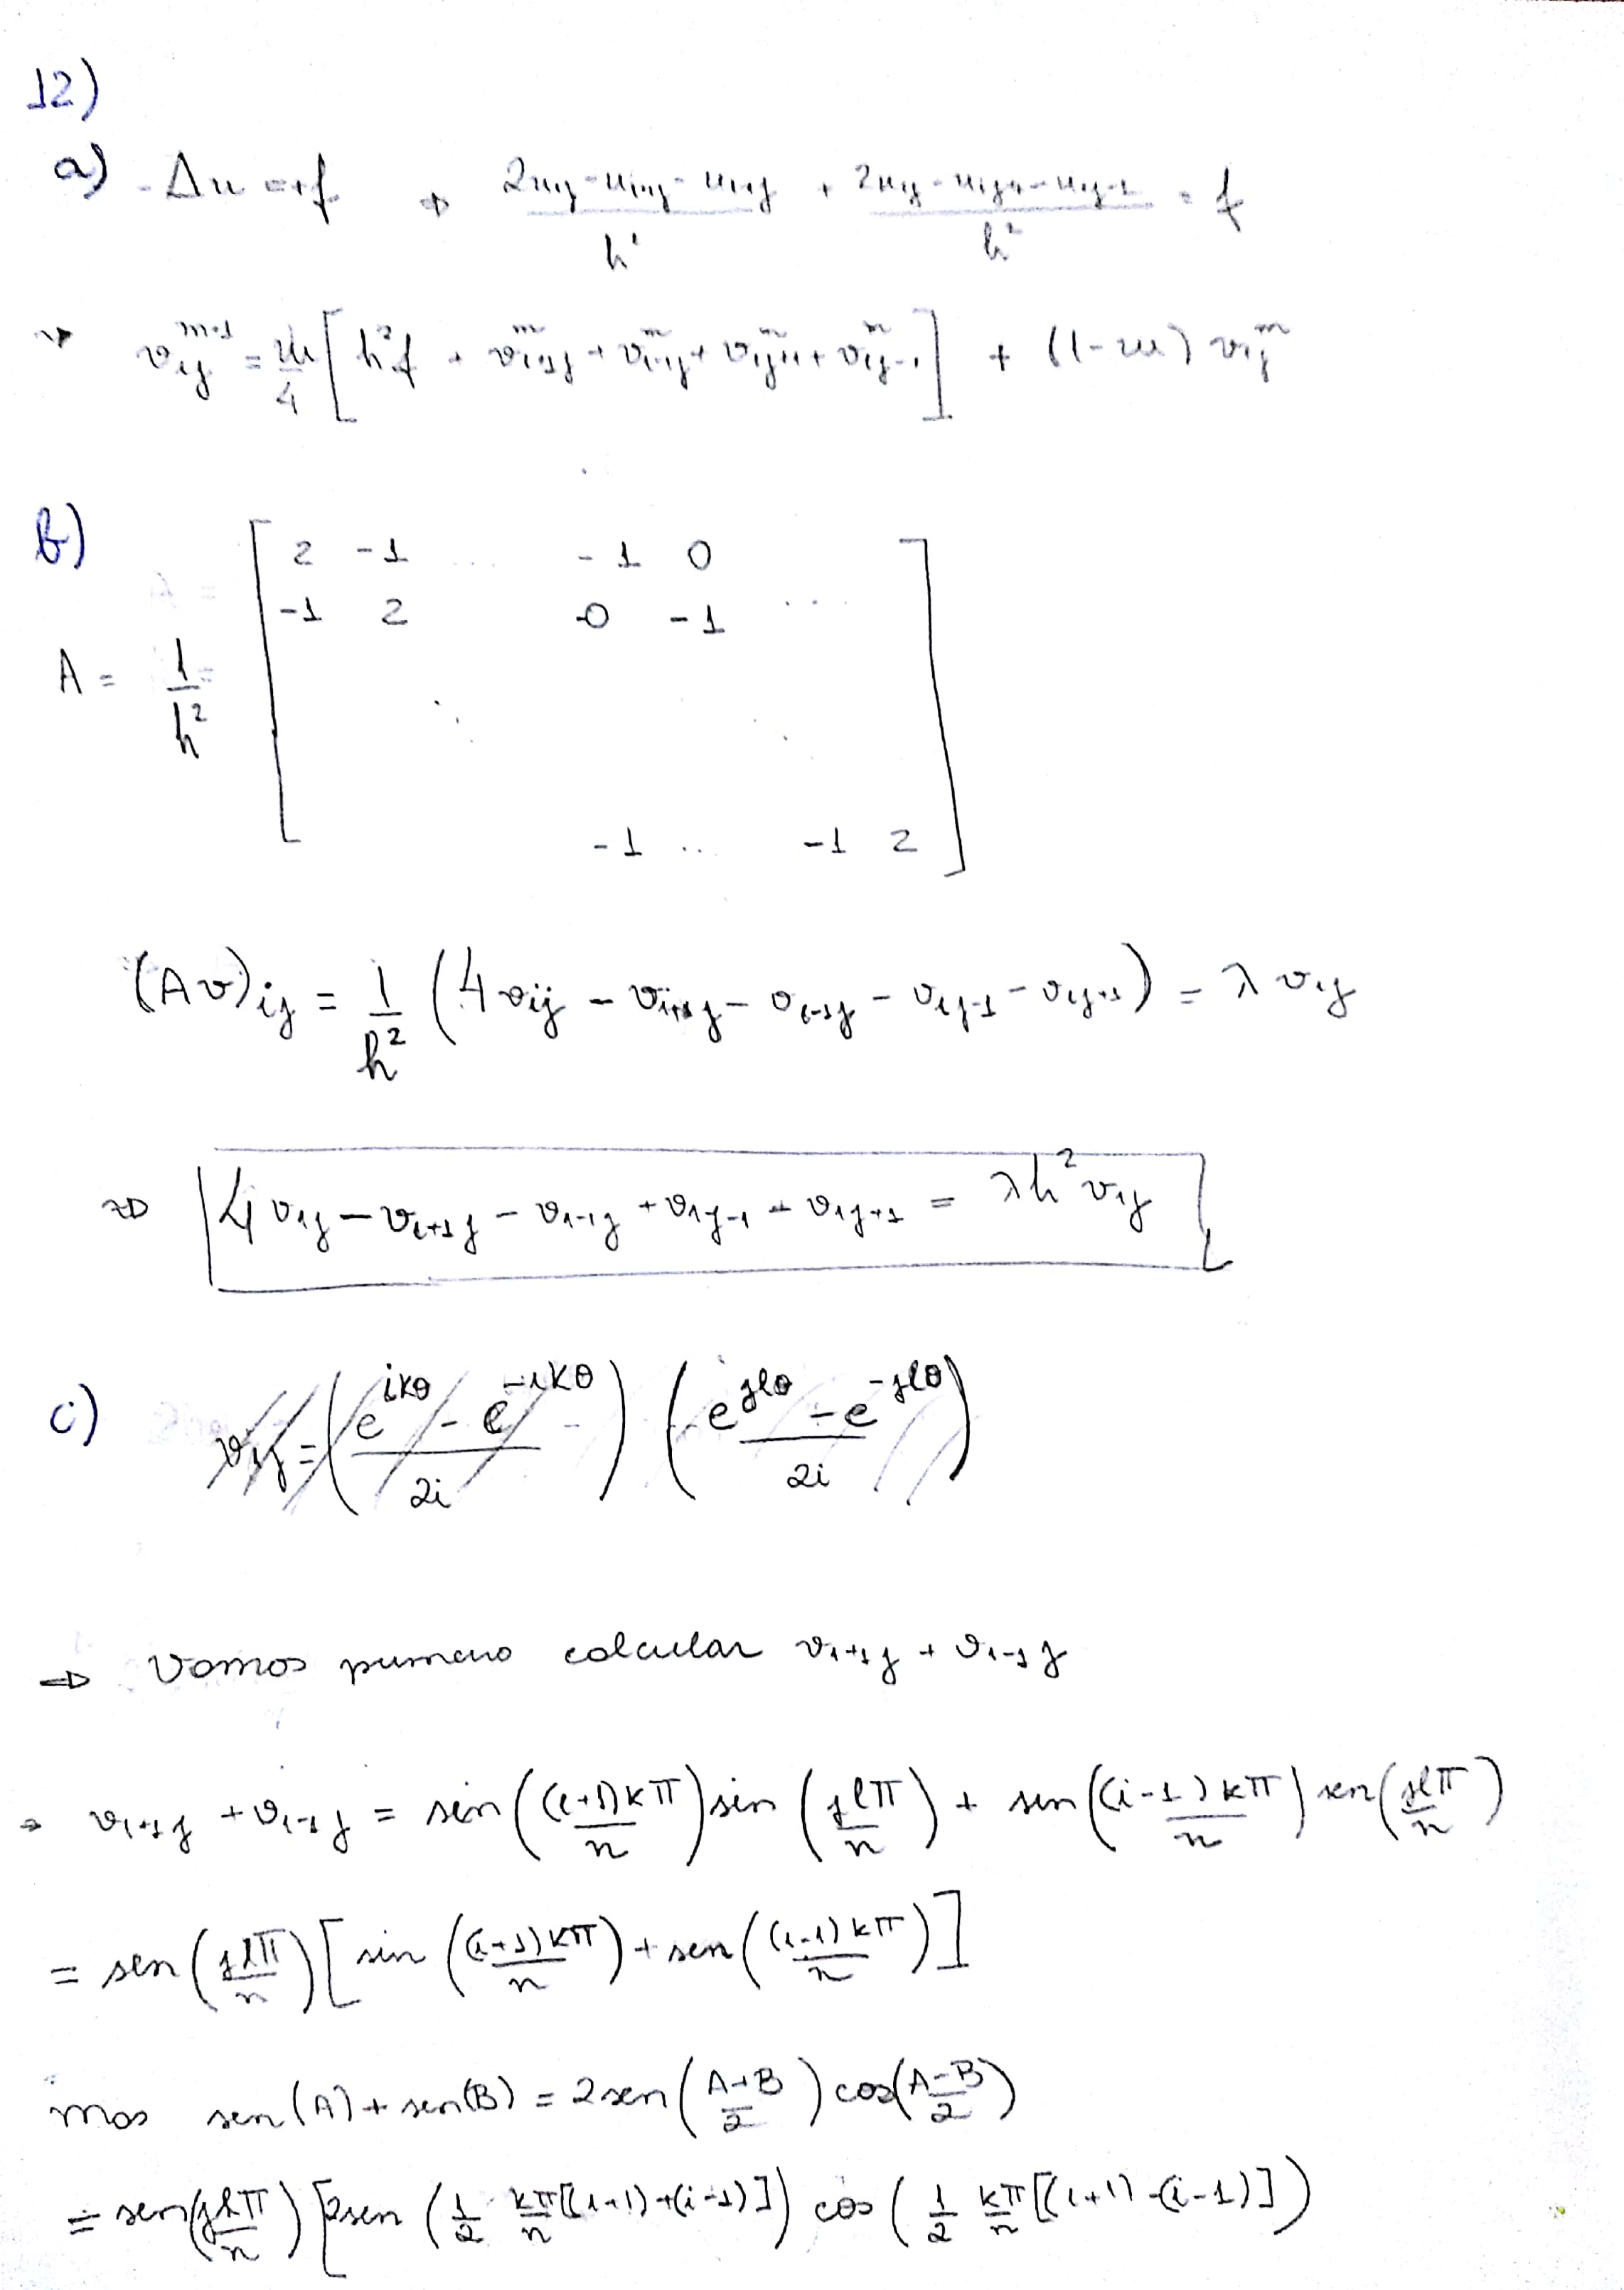 12)
a) -Δu = +f ⇒ (2u_ij - u_i+1j - u_i-1j)/h² + (2u_ij - u_ij+1 - u_ij-1)/h² = f
⇒ v_ij^(m+1) = w/4 [h²f + v_i+1j^m + v_i-1j^m + v_ij+1^m + v_ij-1^m] + (1-w) v_ij^m
b)
2 -1 ... -1 0
-1 2 0 -1 ...
A = 1/h²
-1 ... -1 2
(Av)_ij = 1/h² (4v_ij - v_i+1j - v_i-1j - v_ij-1 - v_ij+1) = λ v_ij
⇒ 4v_ij - v_i+1j - v_i-1j + v_ij-1 + v_ij+1 = λh² v_ij
c) v_ij = ((e^(ikθ) - e^(-ikθ))/2i) ((e^(jlθ) - e^(-jlθ))/2i)
⇒ Vamos primeiro calcular v_i+1j + v_i-1j
⇒ v_i+1j + v_i-1j = sin((i+1)kπ/n) sin(jlπ/n) + sen((i-1)kπ/n) sen(jlπ/n)
= sen(jlπ/n) [sin((i+1)kπ/n) + sen((i-1)kπ/n)]
mas sen(A) + sen(B) = 2sen((A+B)/2) cos((A-B)/2)
= sen(jlπ/n) [2sen(1/2 kπ/n [(i+1)+(i-1)]) cos(1/2 kπ/n [(i+1)-(i-1)])